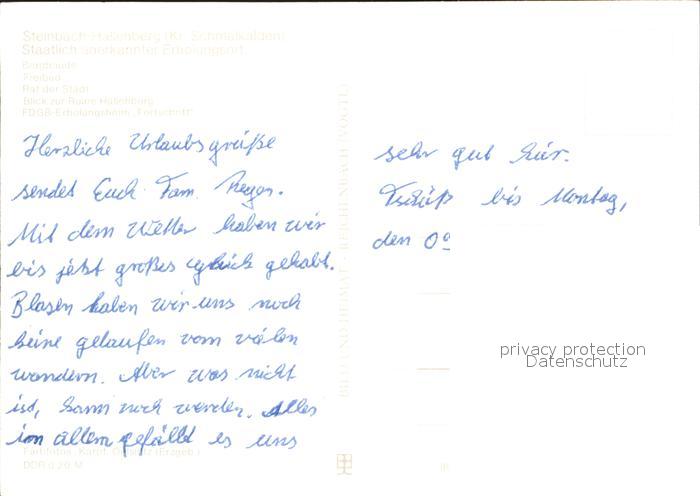 Steinbach-Hallenberg (Kr. Schmalkalden)
Staatlich anerkannter Erholungsort
Bergbaude
Freibad
Rat der Stadt
Blick zur Ruine Hallenburg
FDGB-Erholungsheim „Fortschritt"
Herzliche Urlaubsgrüße
sendet Euch Fam.
Mit dem Wetter haben wir
bis jetzt großes Glück gehabt.
Blasen haben wir uns noch
keine gelaufen vom vielen
wandern. Aber was nicht
ist, kann noch werden. Alles
in allem gefällt es uns
sehr gut hier.
Tschüß bis Montag,
den
BILD UND HEIMAT · REICHENBACH (VOGTL)
privacy protection
Datenschutz
Farbfotos: Karpf, Oelsnitz (Erzgeb.)
DDR 0,20 M